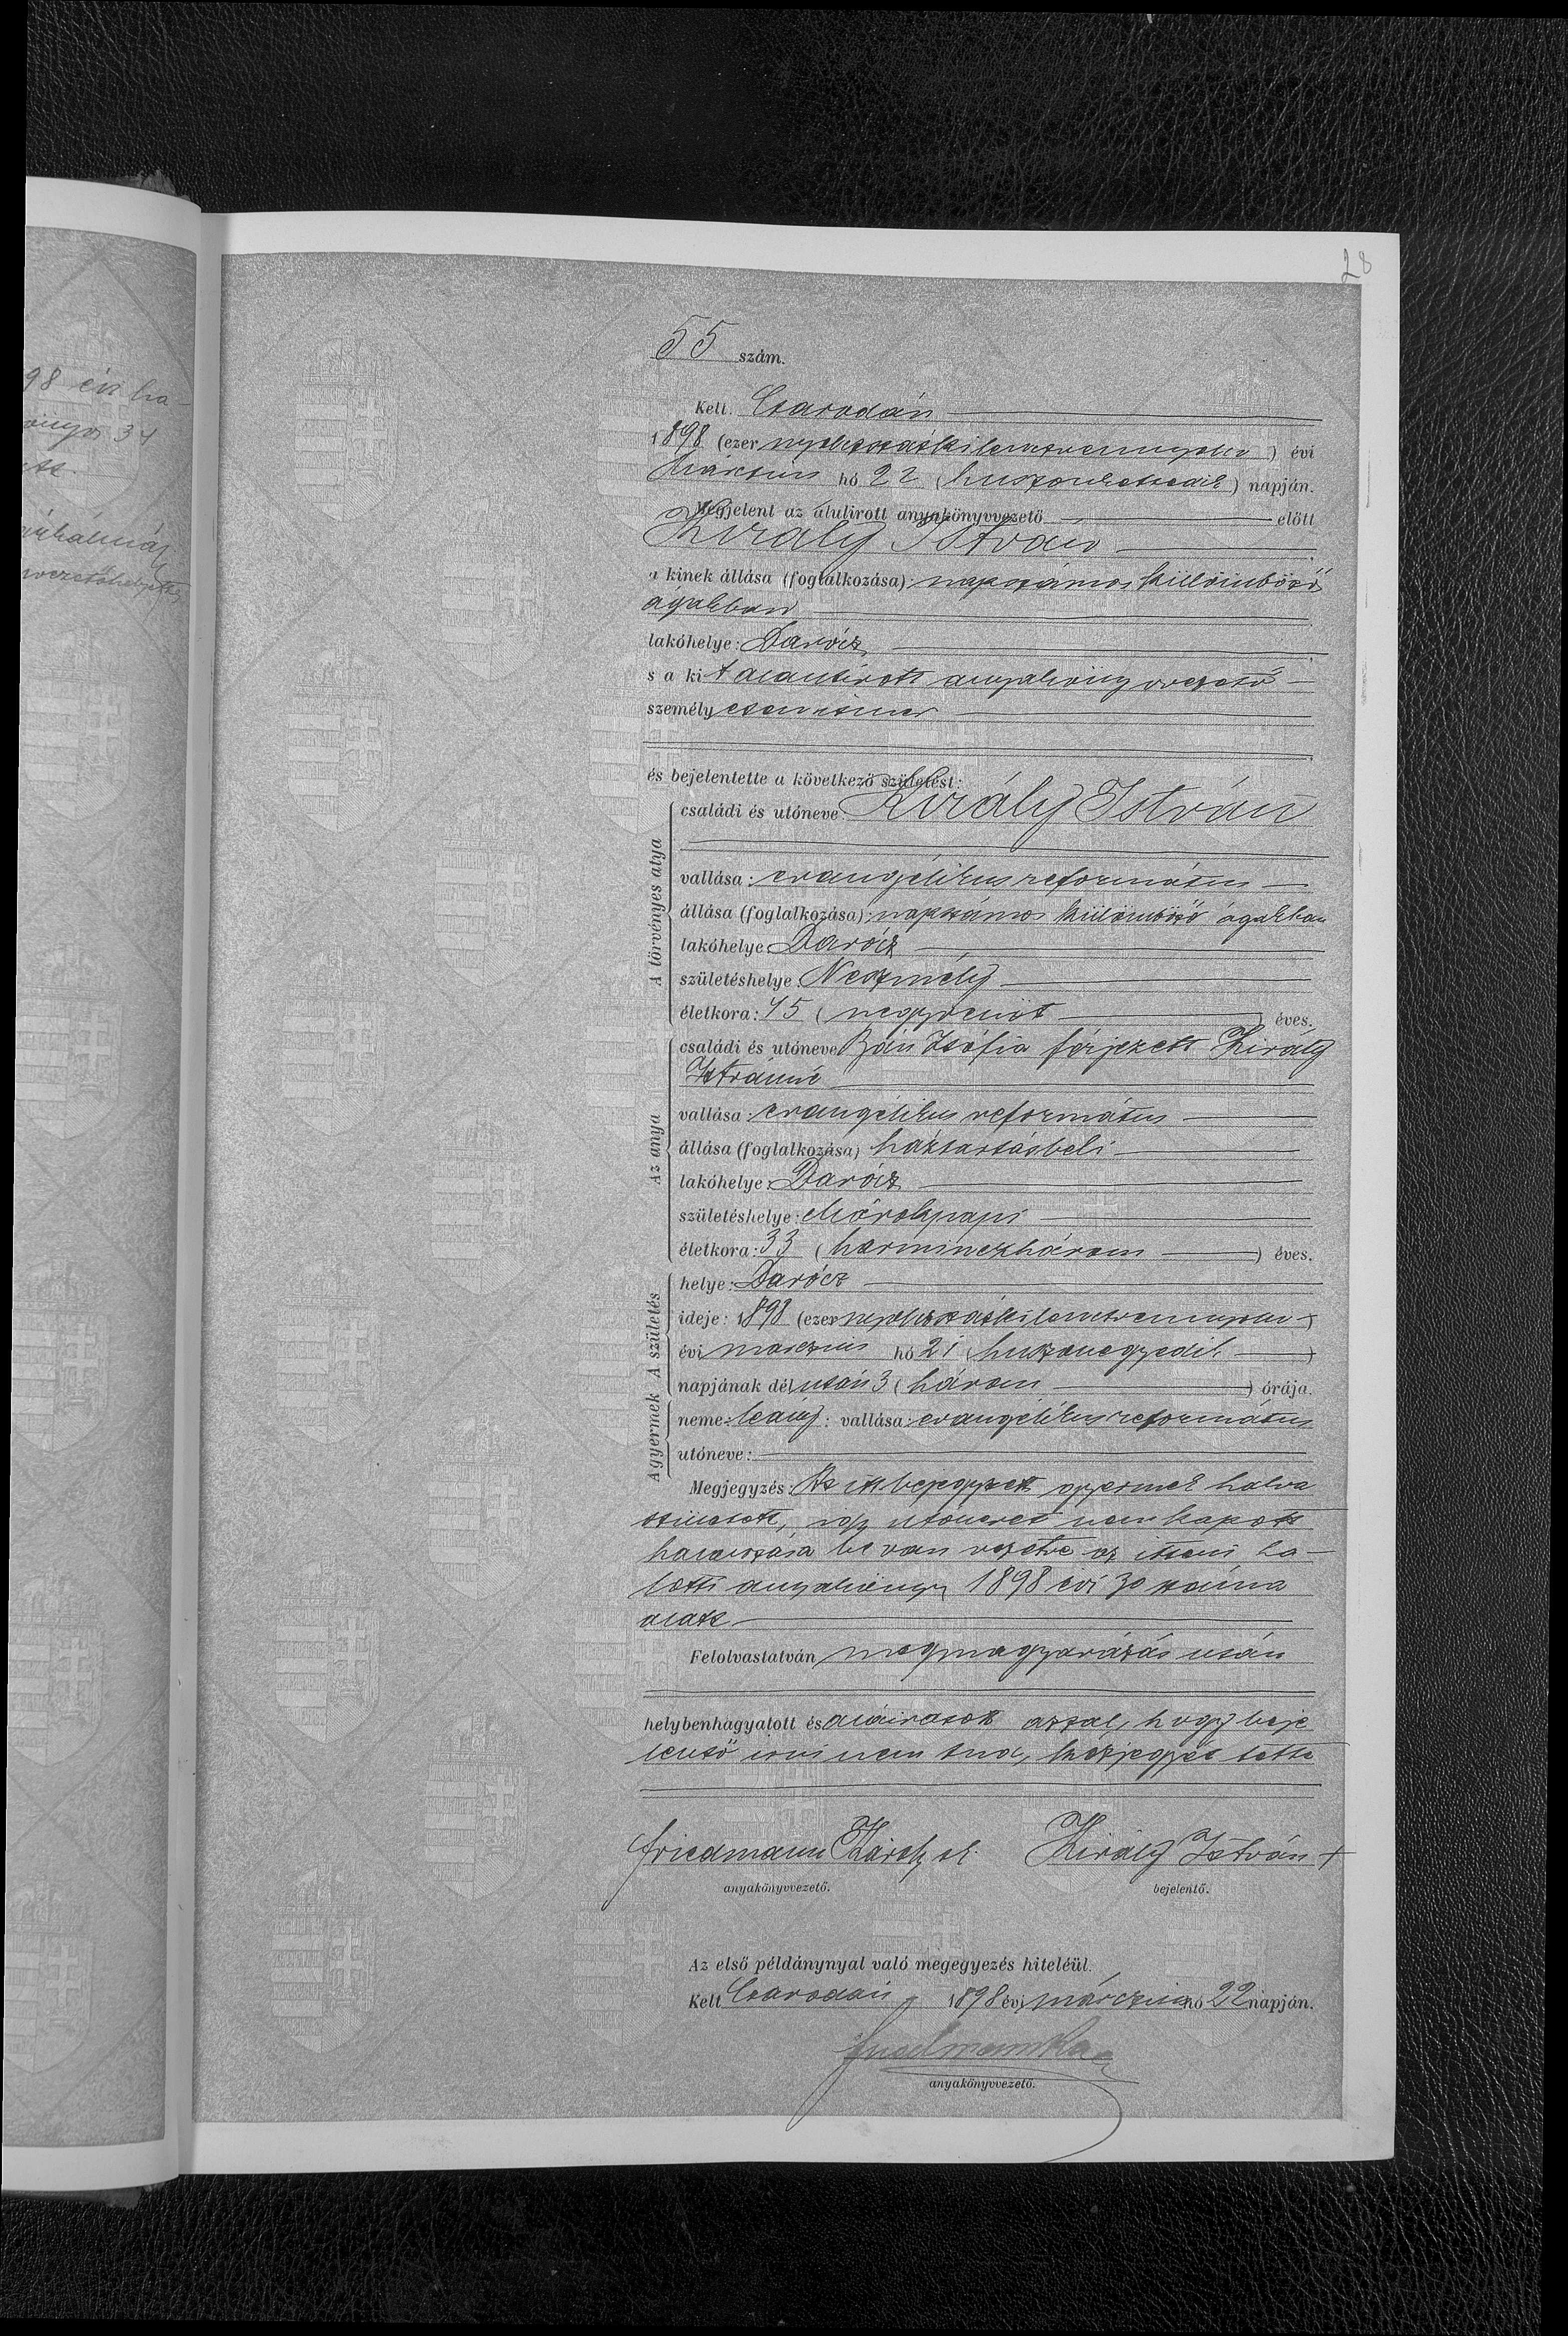 28
98 évi ha-
55 szám.
Kelt Csarodán
1898 (ezer nyolczszázkilenczvennyolcz) évi
márczius hó 22 (huszonkettedik) napján.
Megjelent az alulirott anyakönyvvezető előtt
Király István
a kinek állása (foglalkozása): napszámos különböző
ágakban
lakóhelye: Darócz
s a kit alantirott anyakönyvvezető
személyesen ismer
és bejelentette a következő születést:
A törvényes atya
családi és utóneve: Király István
vallása: evangélikus református
állása (foglalkozása): napszámos különböző ágakban
lakóhelye: Darócz
születéshelye: Neszmély
életkora: 45 (negyvenöt) éves.
Az anya
családi és utóneve: Bán Zsófia férjezett Király
Istvánné
vallása: evangélikus református
állása (foglalkozása) háztartásbeli
lakóhelye: Darócz
születéshelye: Márokpapi
életkora: 33 (harminczhárom) éves.
A születés
helye: Darócz
ideje: 1898 (ezer nyolczszázkilenczvennyolcz)
évi márczius hó 21 (huszonegyedik)
napjának délután 3 (három) órája.
A gyermek
neme: leány: vallása: evangélikus református
utóneve:
Megjegyzés: Az itt bejegyzett gyermek halva
született, így utónevet nem kapott
halálozása be van vezetve az itteni ha-
lotti anyakönyv 1898 évi 30 száma
alatt
Felolvastatván megmagyarázás után
helybenhagyatott és aláiratott azzal, hogy beje
lentő irni nem tud, kézjegyét tette
Friedmann Károly sk. Király István +
anyakönyvvezető. bejelentő.
Az első példánynyal való megegyezés hiteléül.
Kelt Csarodán 1898 évi márczius hó 22 napján.
anyakönyvvezető.